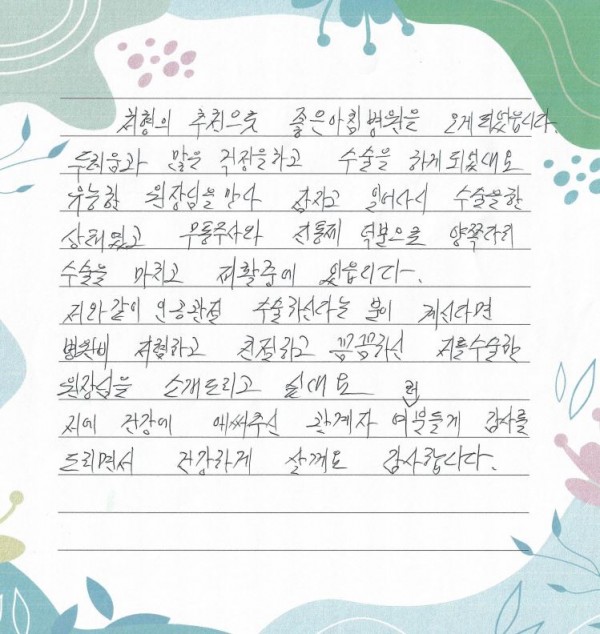 처형의 추천으로 좋은아침병원을 오게되었읍니다.
두려움과 많은 걱정을하고 수술을 하게되었내요
유능한 원장님을만나 잠자고 일어나서 수술을한
상태였고 무통주사와 진통제 덕분으로 양쪽다리
수술을 마치고 재활중에 있읍니다.
저와같이 인공관절 수술하신다는 분이 계신다면
병원비 저렴하고 친절하고 끔끔하신 저를수술한
원장님을 소개드리고 싶내요
저에 건강에 애써주신 관계자 여러분들게 감사를
드리면서 건강하게 살께요 감사합니다.